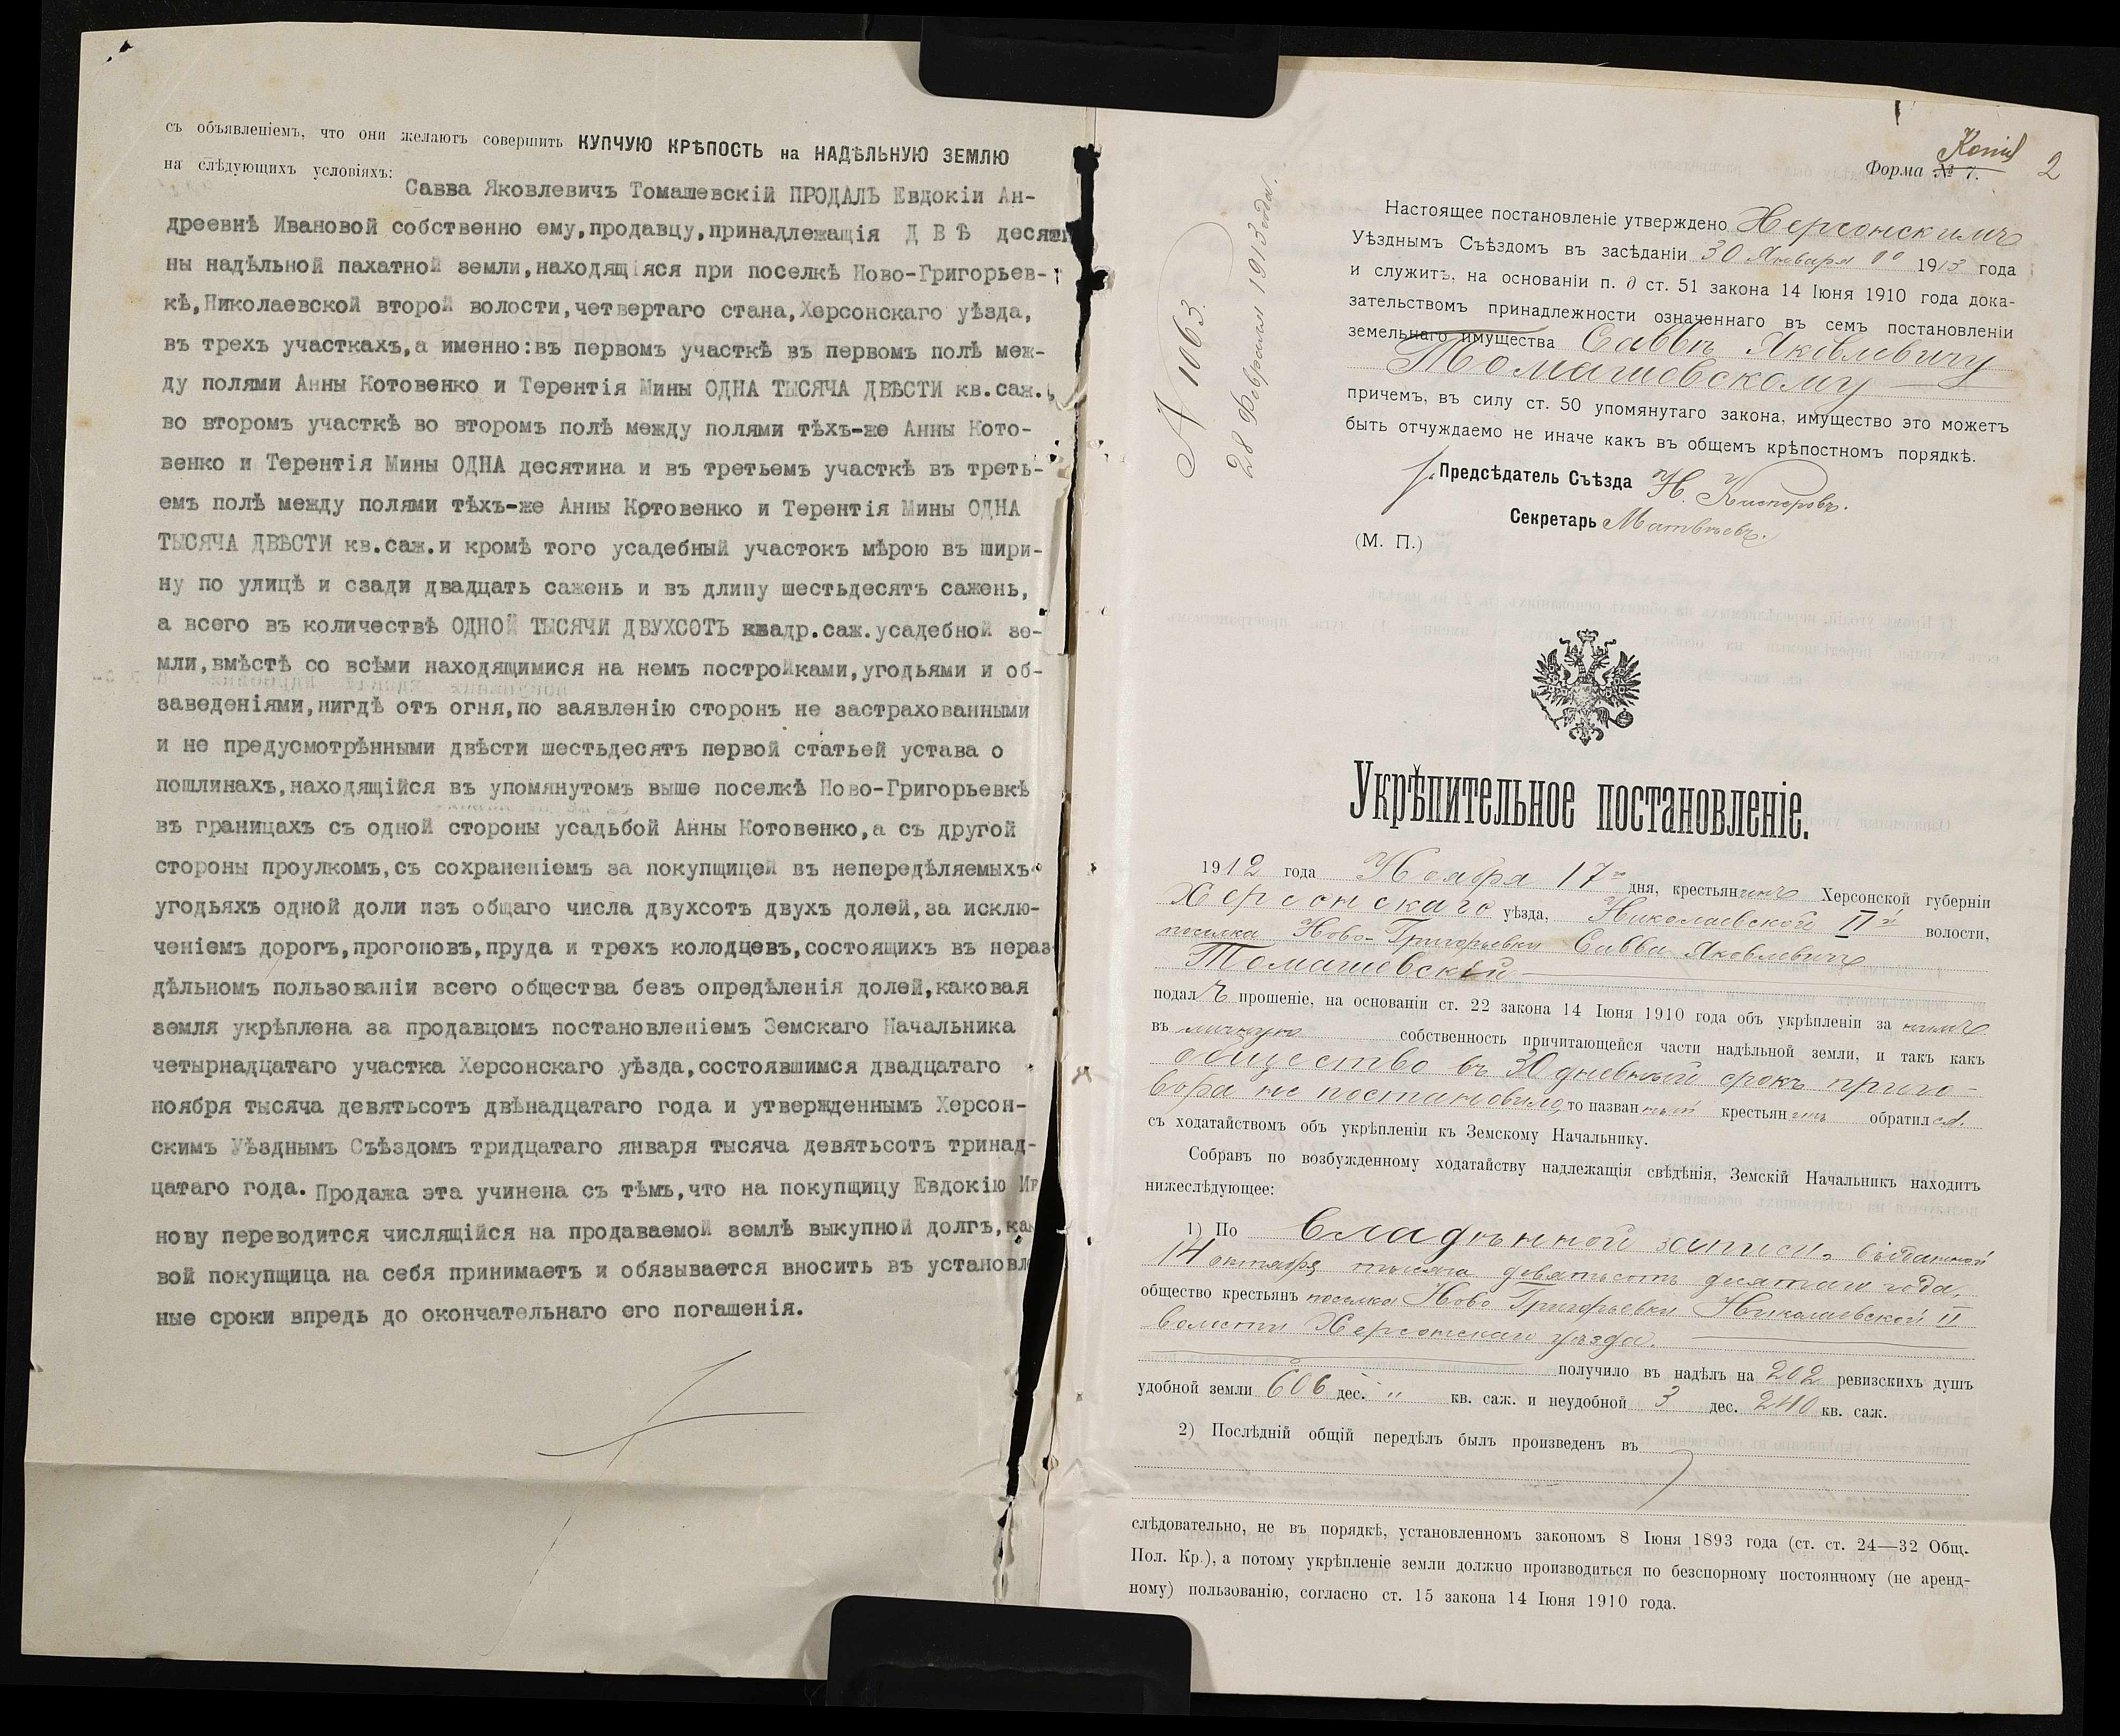 съ объявленіемъ, что они желаютъ совершить КУПЧУЮ КРѢПОСТЬ на НАДѢЛЬНУЮ ЗЕМЛЮ
на слѣдующихъ условіяхъ:
Савва Яковлевичъ Томашевскій ПРОДАЛЪ Евдокіи Ан-
дреевнѣ Ивановой собственно ему,продавцу,принадлежащія Д В Ѣ десяти
ны надѣльной пахатной земли,находящіяся при поселкѣ Ново-Григорьев-
кѣ,Николаевской второй волости,четвертаго стана,Херсонскаго уѣзда,
въ трехъ участкахъ,а именно:въ первомъ участкѣ въ первомъ полѣ меж-
ду полями Анны Котовенко и Терентія Мины ОДНА ТЫСЯЧА ДВѢСТИ кв.саж.,
во второмъ участкѣ во второмъ полѣ между полями тѣхъ-же Анны Кото-
венко и Терентія Мины ОДНА десятина и въ третьемъ участкѣ въ треть-
емъ полѣ между полями тѣхъ-же Анны Котовенко и Терентія Мины ОДНА
ТЫСЯЧА ДВѢСТИ кв.саж.и кромѣ того усадебный участокъ мѣрою въ шири-
ну по улицѣ и сзади двадцать сажень и въ длину шестьдесятъ сажень,
а всего въ количествѣ ОДНОЙ ТЫСЯЧИ ДВУХСОТЪ квадр.саж.усадебной зе-
мли,вмѣстѣ со всѣми находящимися на немъ постройками,угодьями и об-
заведеніями,нигдѣ отъ огня,по заявленію сторонъ не застрахованными
и не предусмотрѣнными двѣсти шестьдесятъ первой статьей устава о
пошлинахъ,находящійся въ упомянутомъ выше поселкѣ Ново-Григорьевкѣ
въ границахъ съ одной стороны усадьбой Анны Котовенко,а съ другой
стороны проулкомъ,съ сохраненіемъ за покупщицей въ непередѣляемыхъ
угодьяхъ одной доли изъ общаго числа двухсотъ двухъ долей,за исклю-
ченіемъ дорогъ,прогоновъ,пруда и трехъ колодцевъ,состоящихъ въ нераз
дѣльномъ пользованіи всего общества безъ опредѣленія долей,каковая
земля укрѣплена за продавцомъ постановленіемъ Земскаго Начальника
четырнадцатаго участка Херсонскаго уѣзда,состоявшимся двадцатаго
ноября тысяча девятьсотъ двѣнадцатаго года и утвержденнымъ Херсон-
скимъ Уѣзднымъ Съѣздомъ тридцатаго января тысяча девятьсотъ тринад-
цатаго года. Продажа эта учинена съ тѣмъ,что на покупщицу Евдокію Ив
нову переводится числящійся на продаваемой землѣ выкупной долгъ,как
вой покупщица на себя принимаетъ и обязывается вносить въ установле
ные сроки впредь до окончательнаго его погашенія.
Копія
Форма № 7.
2
№ 1063.
28 Февраля 1913 года.
Настоящее постановленіе утверждено Херсонскимъ
Уѣзднымъ Съѣздомъ въ засѣданіи 30 Января 1913 года
и служитъ, на основаніи п. д ст. 51 закона 14 Іюня 1910 года дока-
зательствомъ принадлежности означеннаго въ семъ постановленіи
земельнаго имущества Саввѣ Яковлевичу
Томашевскому
причемъ, въ силу ст. 50 упомянутаго закона, имущество это можетъ
быть отчуждаемо не иначе какъ въ общемъ крѣпостномъ порядкѣ.
Предсѣдатель Съѣзда Н. Касперовъ.
Секретарь Матвѣевъ.
(М. П.)
Укрѣпительное постановленіе.
1912 года Ноября 17 дня, крестьянинъ Херсонской губерніи
Херсонскаго уѣзда, Николаевской II й волости,
поселка Ново-Григорьевки Савва Яковлевичъ
Томашевскій
подалъ прошеніе, на основаніи ст. 22 закона 14 Іюня 1910 года объ укрѣпленіи за нимъ
въ личную собственность причитающейся части надѣльной земли, и такъ какъ
общество въ 30 дневный срокъ приго-
вора не постановило, то названный крестьянинъ обратился
съ ходатайствомъ объ укрѣпленіи къ Земскому Начальнику.
Собравъ по возбужденному ходатайству надлежащія свѣдѣнія, Земскій Начальникъ находитъ
нижеслѣдующее:
1) По владѣнной записи, выданной
14 октября тысяча девятьсотъ десятаго года,
общество крестьянъ поселка Ново Григорьевки Николаевской II
волости Херсонскаго уѣзда.
получило въ надѣлъ на 202 ревизскихъ душъ
удобной земли 606 дес. " кв. саж. и неудобной 3 дес. 240 кв. саж.
2) Послѣдній общій передѣлъ былъ произведенъ въ
слѣдовательно, не въ порядкѣ, установленномъ закономъ 8 Іюня 1893 года (ст. ст. 24—32 Общ.
Пол. Кр.), а потому укрѣпленіе земли должно производиться по безспорному постоянному (не аренд-
ному) пользованію, согласно ст. 15 закона 14 Іюня 1910 года.